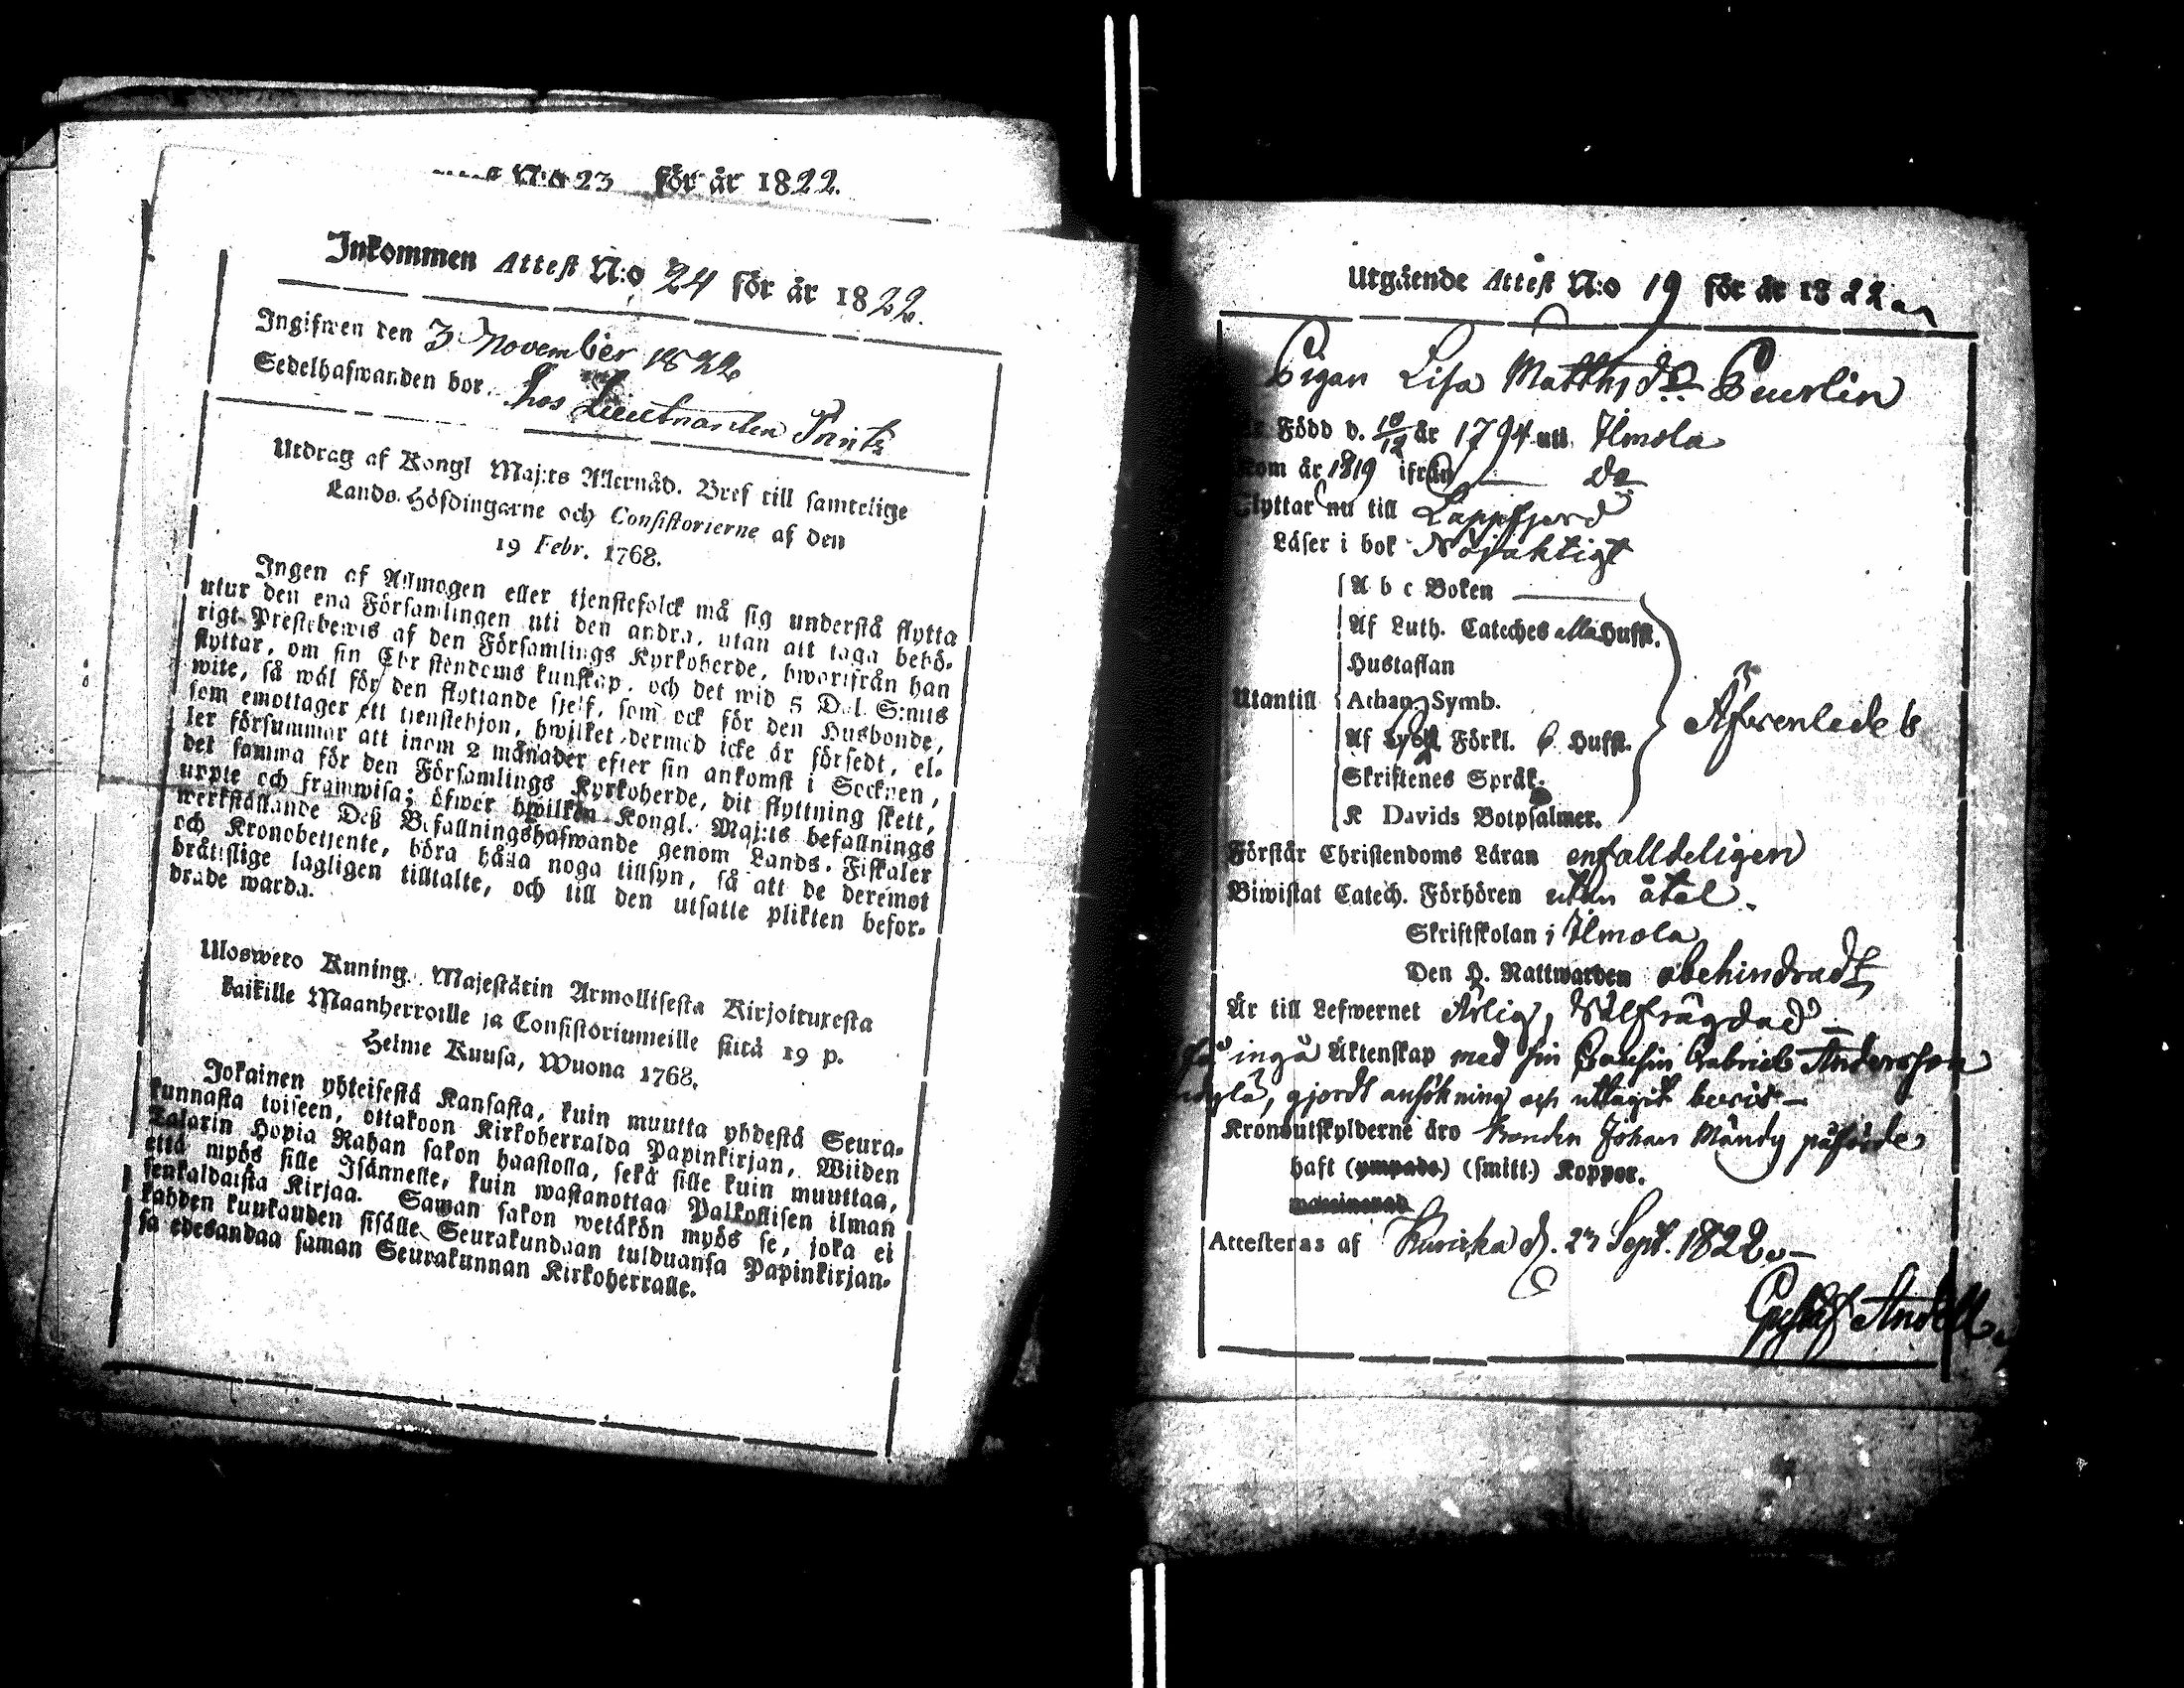 N:o 23 för år 1822.
Inkommen Attest N:o 24 för år 1822.
Ingifwen den 3 November 1822
Sedelhafwanden bor hos Lieutnanten Printz
Utdrag af Kongl Maj:ts Allernåd. Bref till samtelige
Lands-Höfdingarne och Consistorierne af den
19 Febr. 1768.
Ingen af Allmogen eller tjenstefolck må sig understå flytta
utur den ena Församlingen uti den andra, utan att taga behö-
rigt Prestebewis af den Församlings Kyrkoherde, hworifrån han
flyttar, om sin Christendoms kunskap, och det wid 5 Dal. S:mts
wite, så wäl för den flyttande sjelf, som ock för den Husbonde,
som emottager ett tjenstehjon, hwilket dermed icke är försedt, el-
ler försummar att inom 2 månader efter sin ankomst i Socknen,
det samma för den Församlings Kyrkoherde, dit flyttning skett,
uppte och framwisa; öfwer hwilken Kongl. Maj:ts befallnings
werkställande Deß Befallningshafwande genom Lands-Fiskaler
och Kronobetjente, böra hålla noga tillsyn, så att de deremot
bråttslige lagligen tilltalte, och till den utsatte plikten befor-
drade warda.
Ulosweto Kuning. Majestätin Armollisesta Kirjoituxesta
kaikille Maanherroille ja Consistoriumeille siitä 19 p.
Helme Kuusa, Wuona 1768.
Jokainen yhteisestä Kansasta, kuin muutta yhdestä Seura-
kunnasta toiseen, ottakoon Kirkoherralda Papinkirjan, Wiiden
Talarin Hopia Rahan sakon haastolla, sekä sille kuin muuttaa,
että myös sille Isännelle, kuin wastanottaa Palkollisen ilman
senkaldaista Kirjaa. Saman sakon wetäkön myös se, joka ei
kahden kuukauden sisälle Seurakundaan tulduansa Papinkirjan-
sa edesandaa saman Seurakunnan Kirkoherralle.
Utgående Attest N:o 19 för år 1822
Pigan Lisa Matthsdr Peurlin
Född d. 10/12 år 1794 uti Ilmola
Kom år 1819 ifrån — do
Flyttar nu till Lappfjerd
Läser i bok Nöjaktigt
A b c Boken
Af Luth. Cateches alla Hufst.
Hustaflan
Utantill Athan. Symb.
Af Förkl. 6 Hufst.
Skriftenes Språk.
K Davids Botpsalmer.
Äfwenledes
Förstår Christendoms Läran enfalldeligen
Biwistat Catech. Förhören utan åtal.
Skriftskolan i Ilmola
Den H. Nattwarden obehindradt
Är till Lefwernet Ärlig, Wälfrägdad
ingå Äktenskap med sin Gabriel Andersson
gjordt ansökning och uttagit bewis —
Kronoutskylderne äro bonden Johan Mändy påförde
haft (ympade) (smitt.) Koppor.
vaccinerad
Attesteras af Kurikka d. 23 Sept. 1822. —
Gustaf